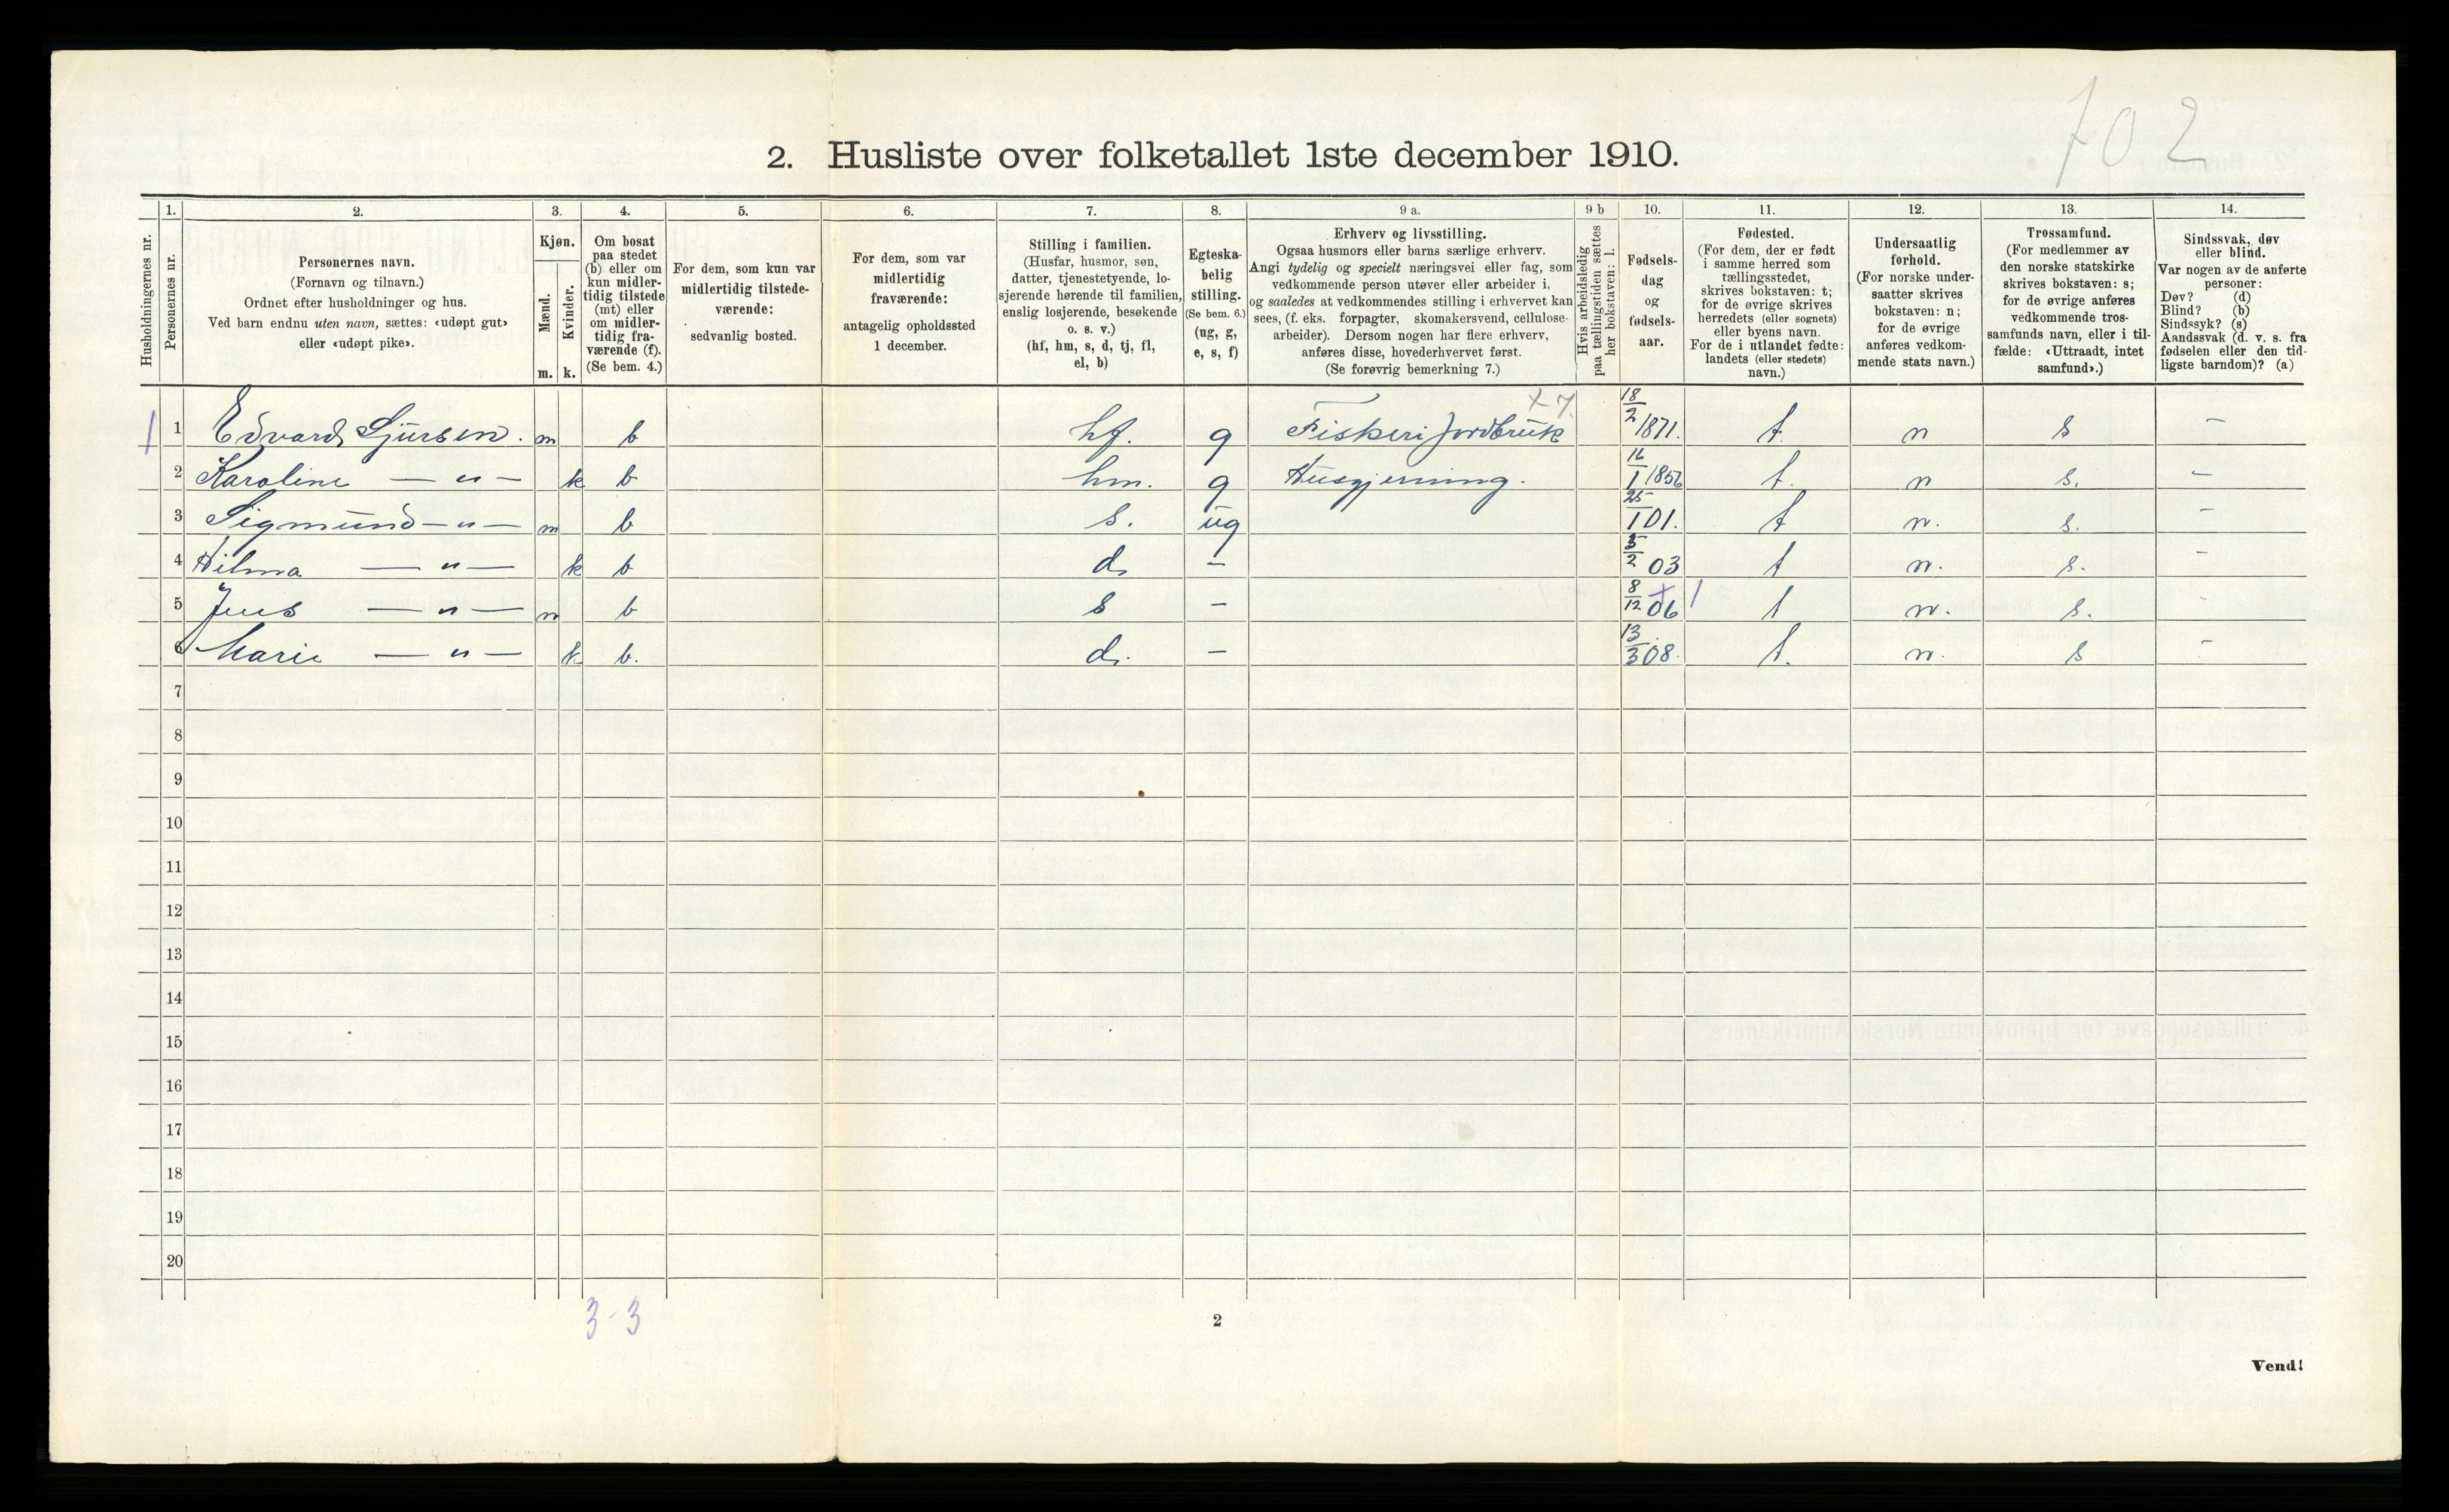 702
2. Husliste over folketallet 1ste december 1910.
1. 2. 3. 4. 5. 6. 7. 8. 9 a. 9 b 10. 11. 12. 13. 14.
Husholdningernes nr.
Personernes nr.
Personernes navn.
(Fornavn og tilnavn.)
Ordnet efter husholdninger og hus.
Ved barn endnu uten navn, sættes: «udøpt gut»
eller «udøpt pike».
Kjøn.
Mænd.
Kvinder.
m. k.
Om bosat
paa stedet
(b) eller om
kun midler-
tidig tilstede
(mt) eller
om midler-
tidig fra-
værende (f).
(Se bem. 4.)
For dem, som kun var
midlertidig tilstede-
værende:
sedvanlig bosted.
For dem, som var
midlertidig
fraværende:
antagelig opholdssted
1 december.
Stilling i familien.
(Husfar, husmor, søn,
datter, tjenestetyende, lo-
sjerende hørende til familien,
enslig losjerende, besøkende
o. s. v.)
(hf, hm, s, d, tj, fl,
el, b)
Egteska-
belig
stilling.
(Se bem. 6.)
(ug, g,
e, s, f)
Erhverv og livsstilling.
Ogsaa husmors eller barns særlige erhverv.
Angi tydelig og specielt næringsvei eller fag, som
vedkommende person utøver eller arbeider i,
og saaledes at vedkommendes stilling i erhvervet kan
sees, (f. eks. forpagter, skomakersvend, cellulose-
arbeider). Dersom nogen har flere erhverv,
anføres disse, hovederhvervet først.
(Se forøvrig bemerkning 7.)
Hvis arbeidsledig
paa tællingstiden sættes
her bokstaven: l.
Fødsels-
dag
og
fødsels-
aar.
Fødested.
(For dem, der er født
i samme herred som
tællingsstedet,
skrives bokstaven: t;
for de øvrige skrives
herredets (eller sognets)
eller byens navn.
For de i utlandet fødte:
landets (eller stedets)
navn.)
Undersaatlig
forhold.
(For norske under-
saatter skrives
bokstaven: n;
for de øvrige
anføres vedkom-
mende stats navn.)
Trossamfund.
(For medlemmer av
den norske statskirke
skrives bokstaven: s;
for de øvrige anføres
vedkommende tros-
samfunds navn, eller i til-
fælde: «Uttraadt, intet
samfund».)
Sindssvak, døv
eller blind.
Var nogen av de anførte
personer:
Døv? (d)
Blind? (b)
Sindssyk? (s)
Aandssvak (d. v. s. fra
fødselen eller den tid-
ligste barndom)? (a)
1 1 Edvard Sjursen. m b hf. g Fiskeri Jordbruk x 7. 18/2 1871. t. n s –
2 Karoline — „ — k b hm. g Husgjerning. 16/1 1856 t. n s. –
3 Sigmund — „ — m b s. ug 25/1 01. t n. s. –
4 Hilma — „ — k b d. – 5/2 03 t n. s. –
5 Jens — „ — m b s – 8/12 06 + 1 t n. s. -
6 Marie — „ — k b. d. – 13/3 08. t. n. s –
7
8
9
10
11
12
13
14
15
16
17
18
19
20
3-3
2
Vend!